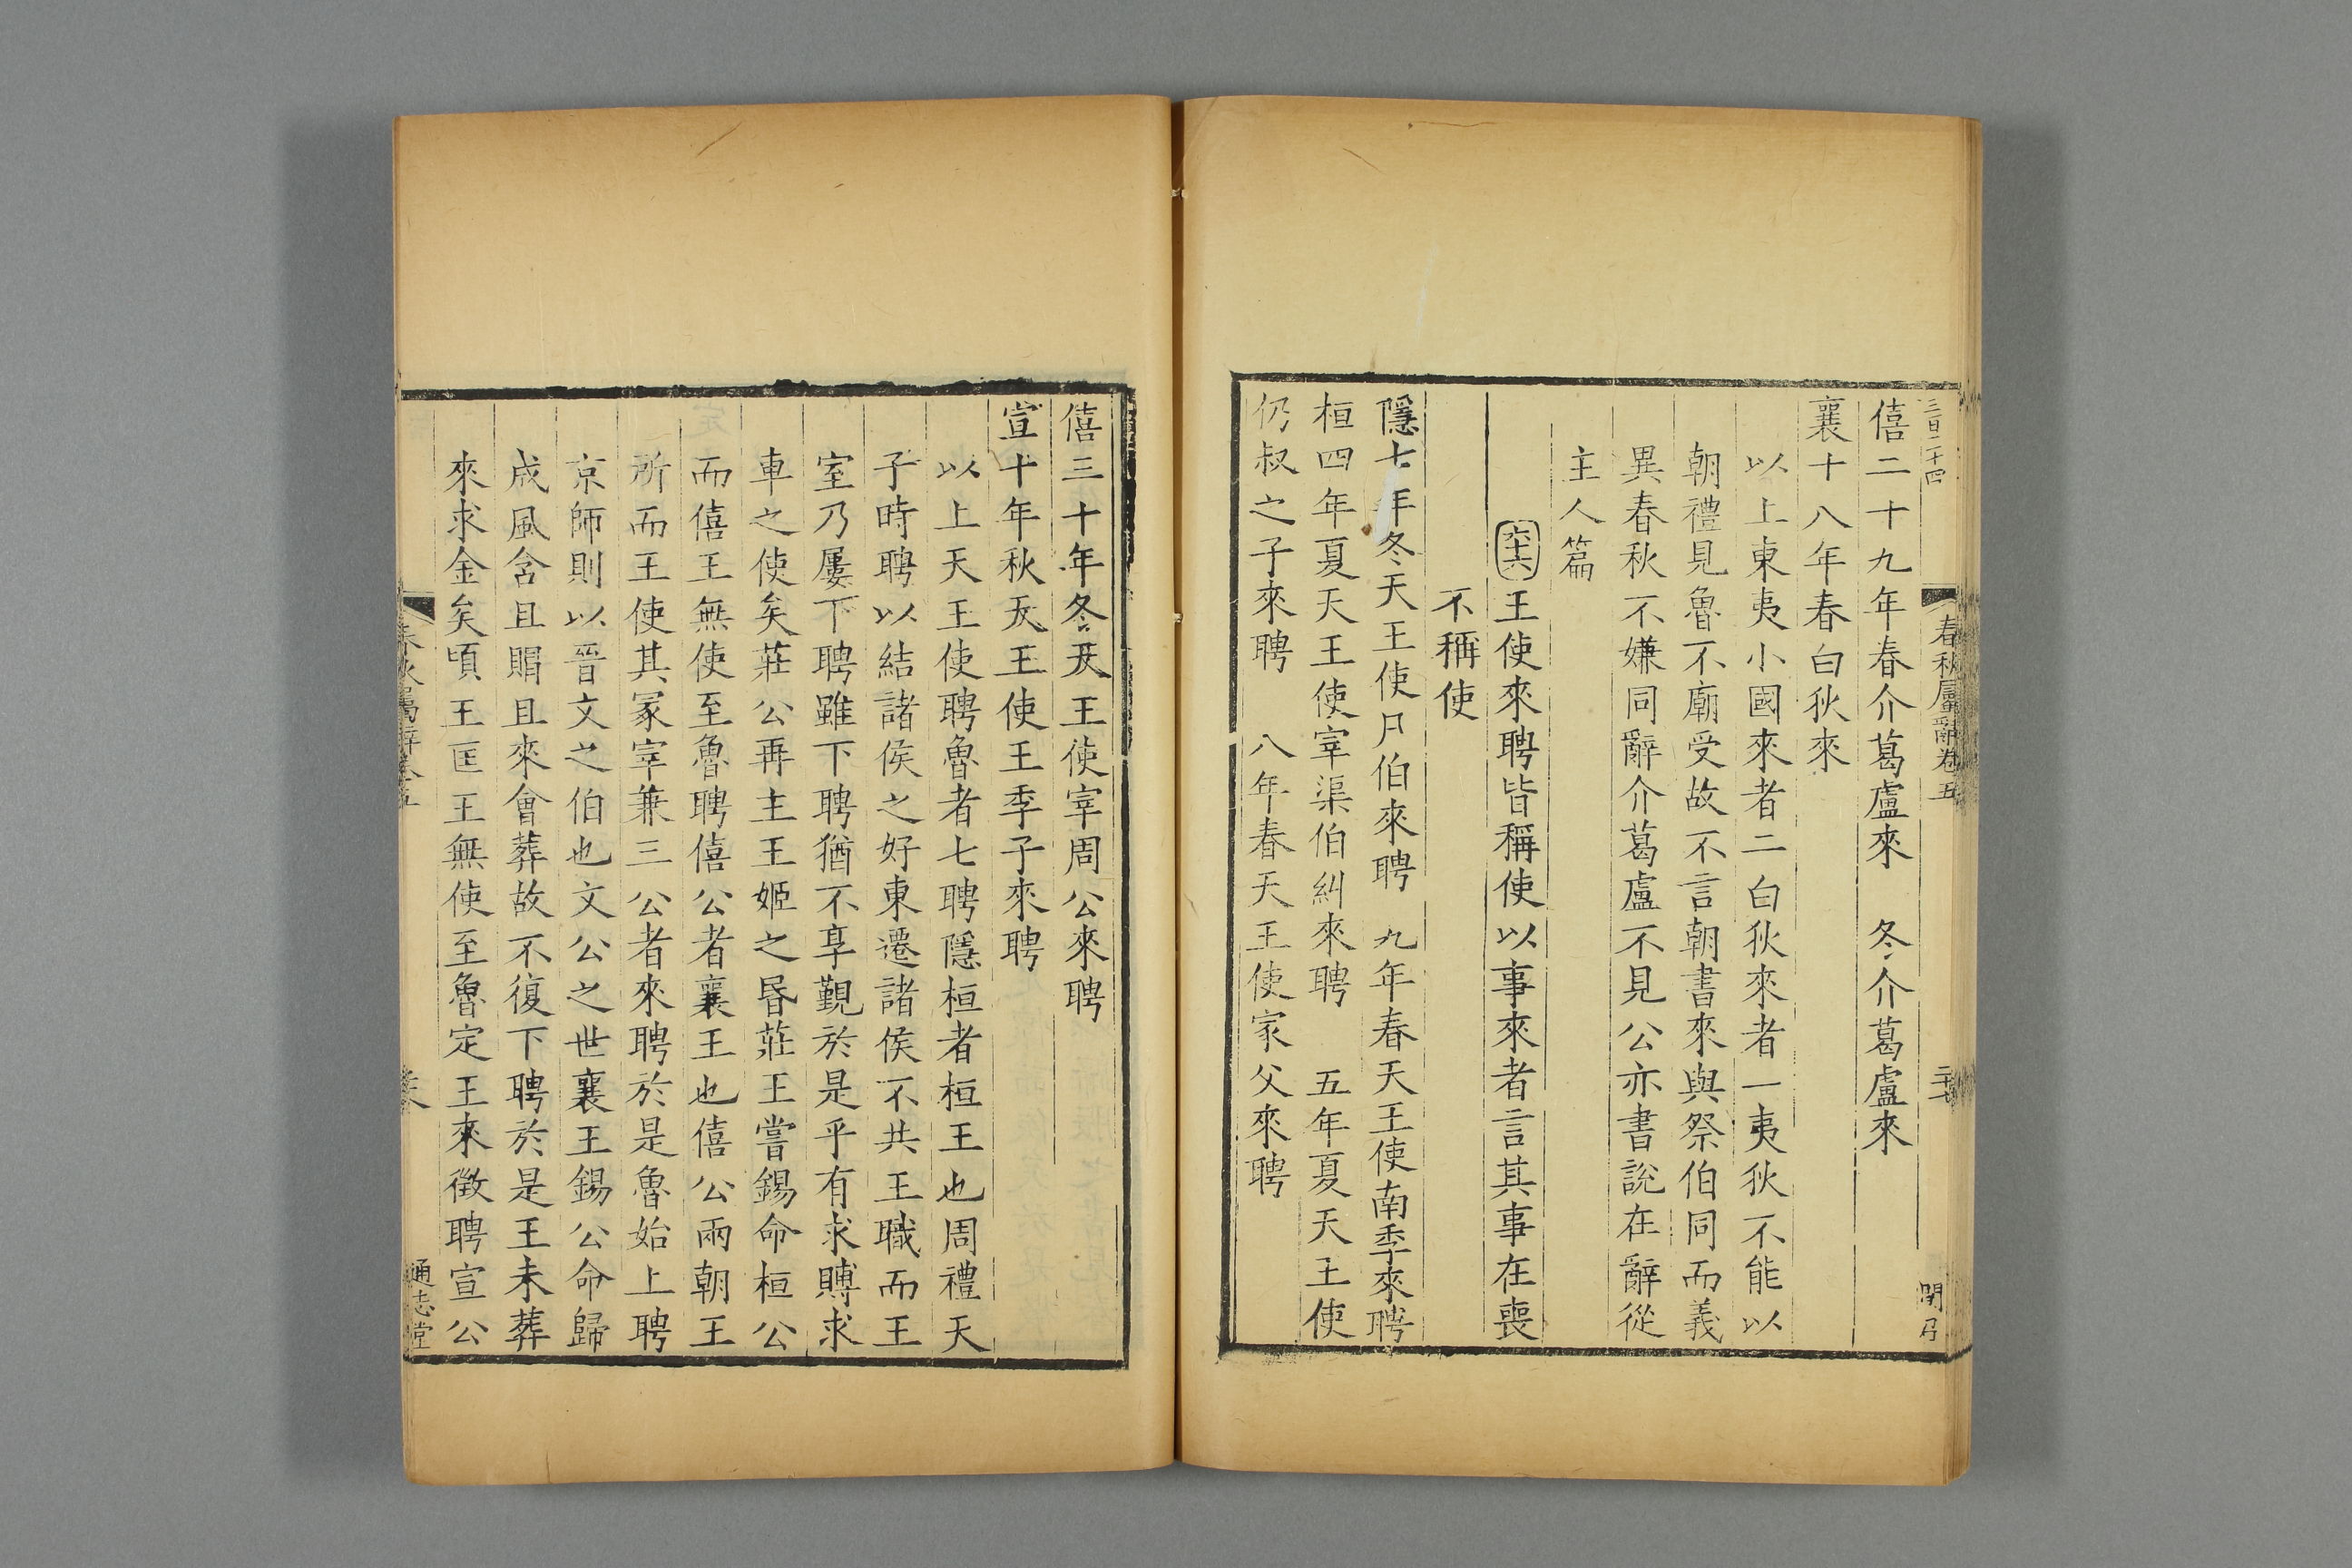 三百二十四
春秋屬辭卷五
二十七
僖二十九年春介葛盧來　冬介葛盧來
襄十八年春白狄來
以上東夷小國來者二白狄來者一夷狄不能以
朝禮見魯不廟受故不言朝書來與祭伯同而義
異春秋不嫌同辭介葛盧不見公亦書說在辭從
主人篇
六十六王使來聘皆稱使以事來者言其事在喪
不稱使
隱七年冬天王使凡伯來聘　九年春天王使南季來聘
桓四年夏天王使宰渠伯糾來聘　五年夏天王使
仍叔之子來聘　八年春天王使家父來聘
僖三十年冬天王使宰周公來聘
宣十年秋天王使王季子來聘
以上天王使聘魯者七聘隱桓者桓王也周禮天
子時聘以結諸侯之好東遷諸侯不共王職而王
室乃屢下聘雖下聘猶不享覲於是乎有求賻求
車之使矣莊公再主王姬之昏莊王嘗錫命桓公
而僖王無使至魯聘僖公者襄王也僖公兩朝王
所而王使其冢宰兼三公者來聘於是魯始上聘
京師則以晉文之伯也文公之世襄王錫公命歸
成風含且賵且來會葬故不復下聘於是王未葬
來求金矣頃王匡王無使至魯定王來徵聘宣公
春秋屬辭卷五
通志堂